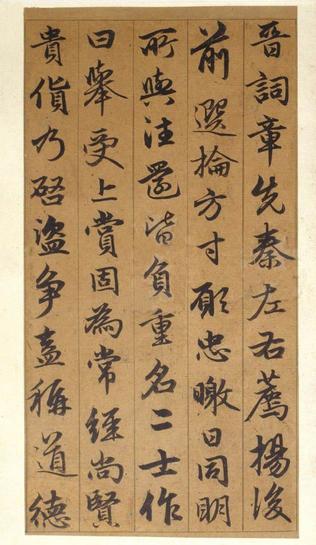 晉詞章先秦左右薦揚後
前選掄方寸願忠曒日同明
所與注皆負重名二士作
曰舉受上賞固為常經尚賢
貴貨乃啓盜爭盍稱道德